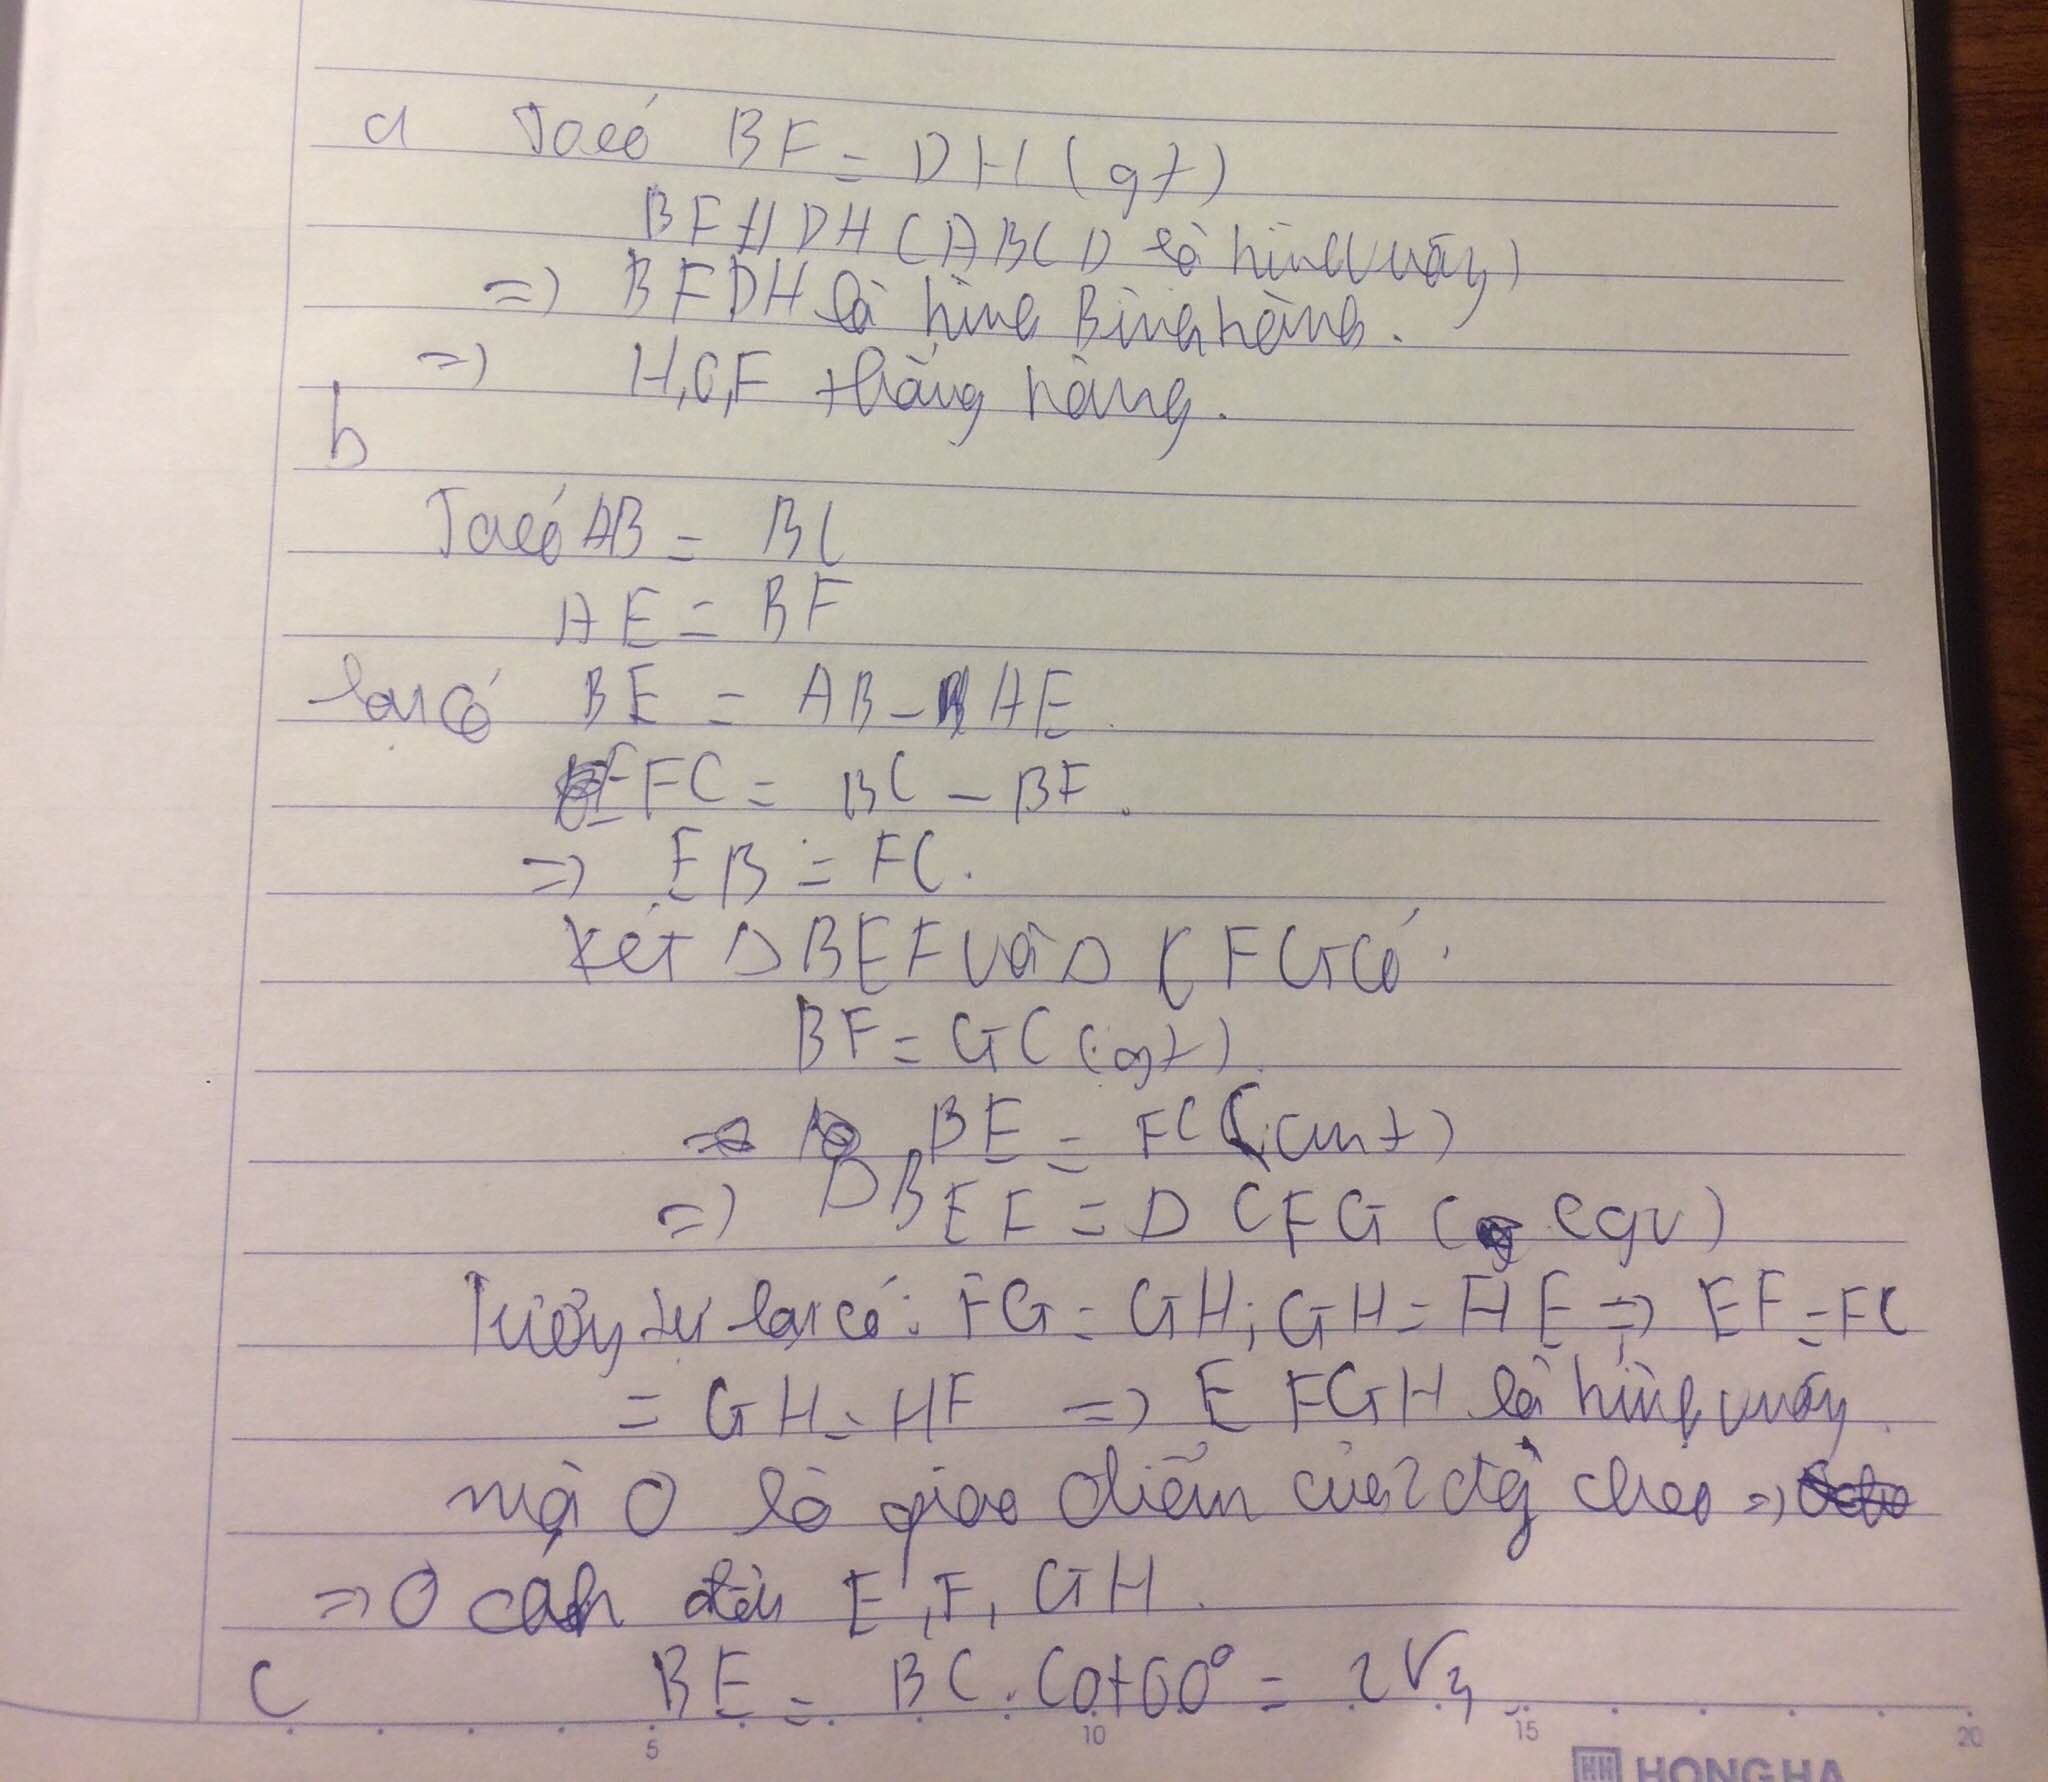 a Ta có BF = DH (gt)
BF // DH (ABCD là hình vuông)
=> BFDH là hình Bình hành.
=> H,O,F thẳng hàng.
b
Ta có AB = BC
AE = BF
lại có BE = AB - AE.
FC = BC - BF.
=> EB = FC.
Xét Δ BEF và Δ CFG có.
BF = GC (gt).
BE = FC (cmt)
=> Δ BEF = Δ CFG (cgv)
Tương tự lại có: FG = GH; GH = HE => EF = FC
= GH = HF => EFGH là hình vuông.
mà O là giao điểm của 2 đg chéo =>
=> O cách đều E, F, GH.
c BE = BC. Cot60° = 2√3
5 10 15 20
HH HONG HA